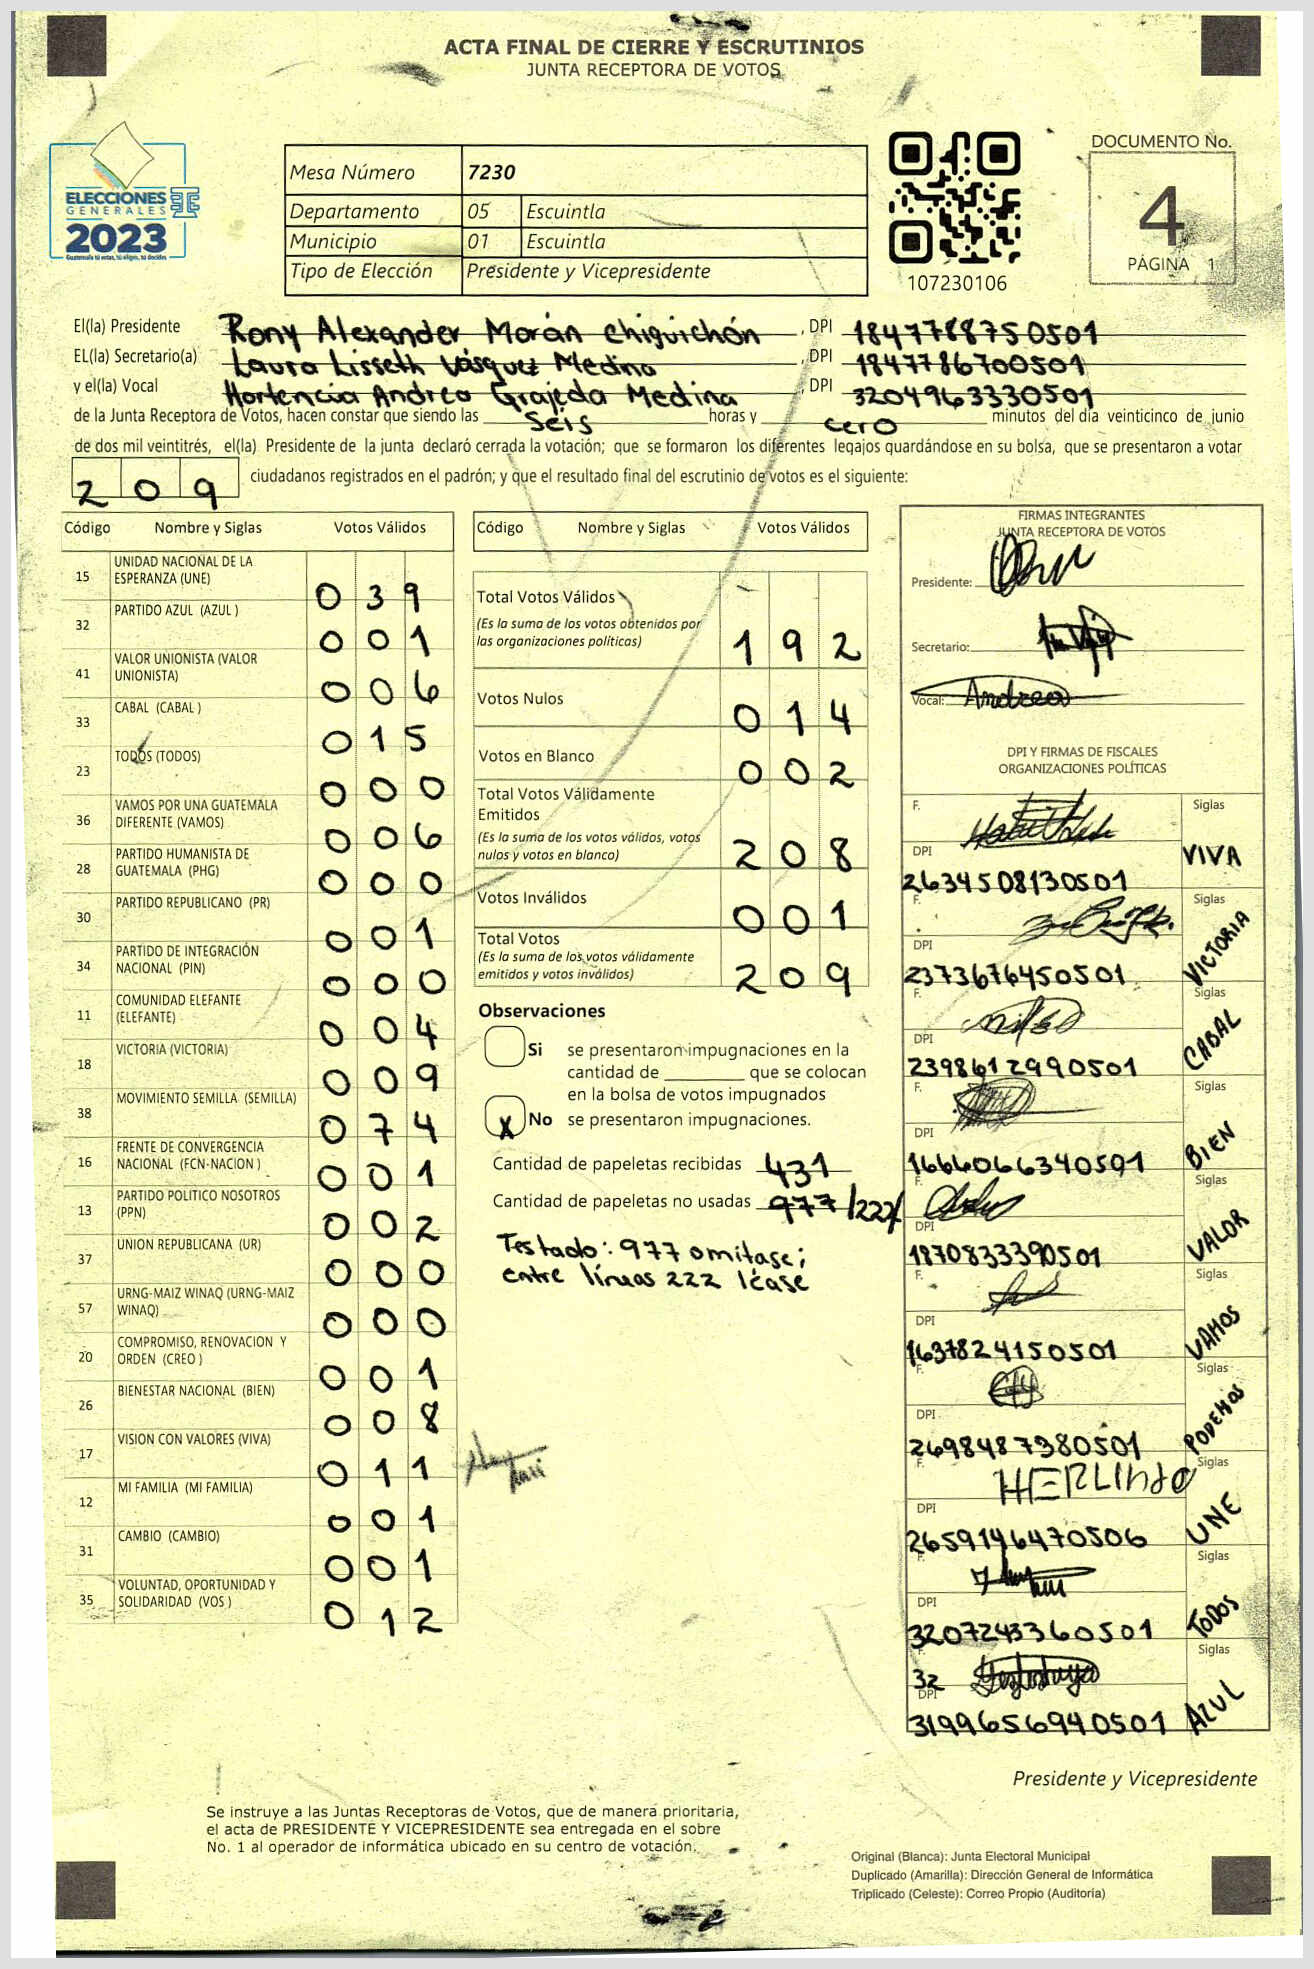 ACTA FINAL DE CIERRE Y ESCRUTINIOS
JUNTA RECEPTORA DE VOTOS
ELECCIONES
GENERALES
2023
Guatemala tú votas, tú eliges, tú decides
Mesa Número 7230
Departamento 05 Escuintla
Municipio 01 Escuintla
Tipo de Elección Presidente y Vicepresidente
107230106
DOCUMENTO No.
4
PÁGINA 1
El(la) Presidente Rony Alexander Morán Chiguichón , DPI 1847788750501
EL(la) Secretario(a) Laura Lisseth Vásquez Medina , DPI 1847786700501
y el(la) Vocal Hortencia Andrea Grajeda Medina , DPI 3204963330501
de la Junta Receptora de Votos, hacen constar que siendo las seis horas y cero minutos del día veinticinco de junio
de dos mil veintitrés, el(la) Presidente de la junta declaró cerrada la votación; que se formaron los diferentes legajos guardándose en su bolsa, que se presentaron a votar
209 ciudadanos registrados en el padrón; y que el resultado final del escrutinio de votos es el siguiente:
Código Nombre y Siglas Votos Válidos
15 UNIDAD NACIONAL DE LA ESPERANZA (UNE) 039
32 PARTIDO AZUL (AZUL ) 001
41 VALOR UNIONISTA (VALOR UNIONISTA) 006
33 CABAL (CABAL ) 015
23 TODOS (TODOS) 000
36 VAMOS POR UNA GUATEMALA DIFERENTE (VAMOS) 006
28 PARTIDO HUMANISTA DE GUATEMALA (PHG) 000
30 PARTIDO REPUBLICANO (PR) 001
34 PARTIDO DE INTEGRACIÓN NACIONAL (PIN) 000
11 COMUNIDAD ELEFANTE (ELEFANTE) 004
18 VICTORIA (VICTORIA) 009
38 MOVIMIENTO SEMILLA (SEMILLA) 074
16 FRENTE DE CONVERGENCIA NACIONAL (FCN-NACION ) 001
13 PARTIDO POLITICO NOSOTROS (PPN) 002
37 UNION REPUBLICANA (UR) 000
57 URNG-MAIZ WINAQ (URNG-MAIZ WINAQ) 000
20 COMPROMISO, RENOVACION Y ORDEN (CREO ) 001
26 BIENESTAR NACIONAL (BIEN) 008
17 VISION CON VALORES (VIVA) 011
12 MI FAMILIA (MI FAMILIA) 001
31 CAMBIO (CAMBIO) 001
35 VOLUNTAD, OPORTUNIDAD Y SOLIDARIDAD (VOS ) 012
Código Nombre y Siglas Votos Válidos
Total Votos Válidos
(Es la suma de los votos obtenidos por
las organizaciones políticas) 192
Votos Nulos 014
Votos en Blanco 002
Total Votos Válidamente
Emitidos
(Es la suma de los votos válidos, votos
nulos y votos en blanco) 208
Votos Inválidos 001
Total Votos
(Es la suma de los votos válidamente
emitidos y votos inválidos) 209
Observaciones
Si se presentaron impugnaciones en la
cantidad de que se colocan
en la bolsa de votos impugnados
X No se presentaron impugnaciones.
Cantidad de papeletas recibidas 431
Cantidad de papeletas no usadas 977 /222/
Testado: 977 omitase;
entre líneas 222 léase
FIRMAS INTEGRANTES
JUNTA RECEPTORA DE VOTOS
Presidente:
Secretario:
Vocal: Andrea
DPI Y FIRMAS DE FISCALES
ORGANIZACIONES POLÍTICAS
F. Siglas
DPI VIVA
2634508130501
F. Siglas
DPI VICTORIA
2373676450501
F. Siglas
DPI CABAL
2398612990501
F. Siglas
DPI BIEN
1664066340501
F. Siglas
DPI VALOR
1870833390501
F. Siglas
DPI VAMOS
1637824150501
F. Siglas
DPI PODEMOS
2698487380501
F. HERLINDO Siglas
DPI UNE
2659146470506
F. Siglas
DPI TODOS
3207243360501
F. Siglas
32
DPI AZUL
3199656940501
Presidente y Vicepresidente
Se instruye a las Juntas Receptoras de Votos, que de manera prioritaria,
el acta de PRESIDENTE Y VICEPRESIDENTE sea entregada en el sobre
No. 1 al operador de informática ubicado en su centro de votación.
Original (Blanca): Junta Electoral Municipal
Duplicado (Amarilla): Dirección General de Informática
Triplicado (Celeste): Correo Propio (Auditoría)